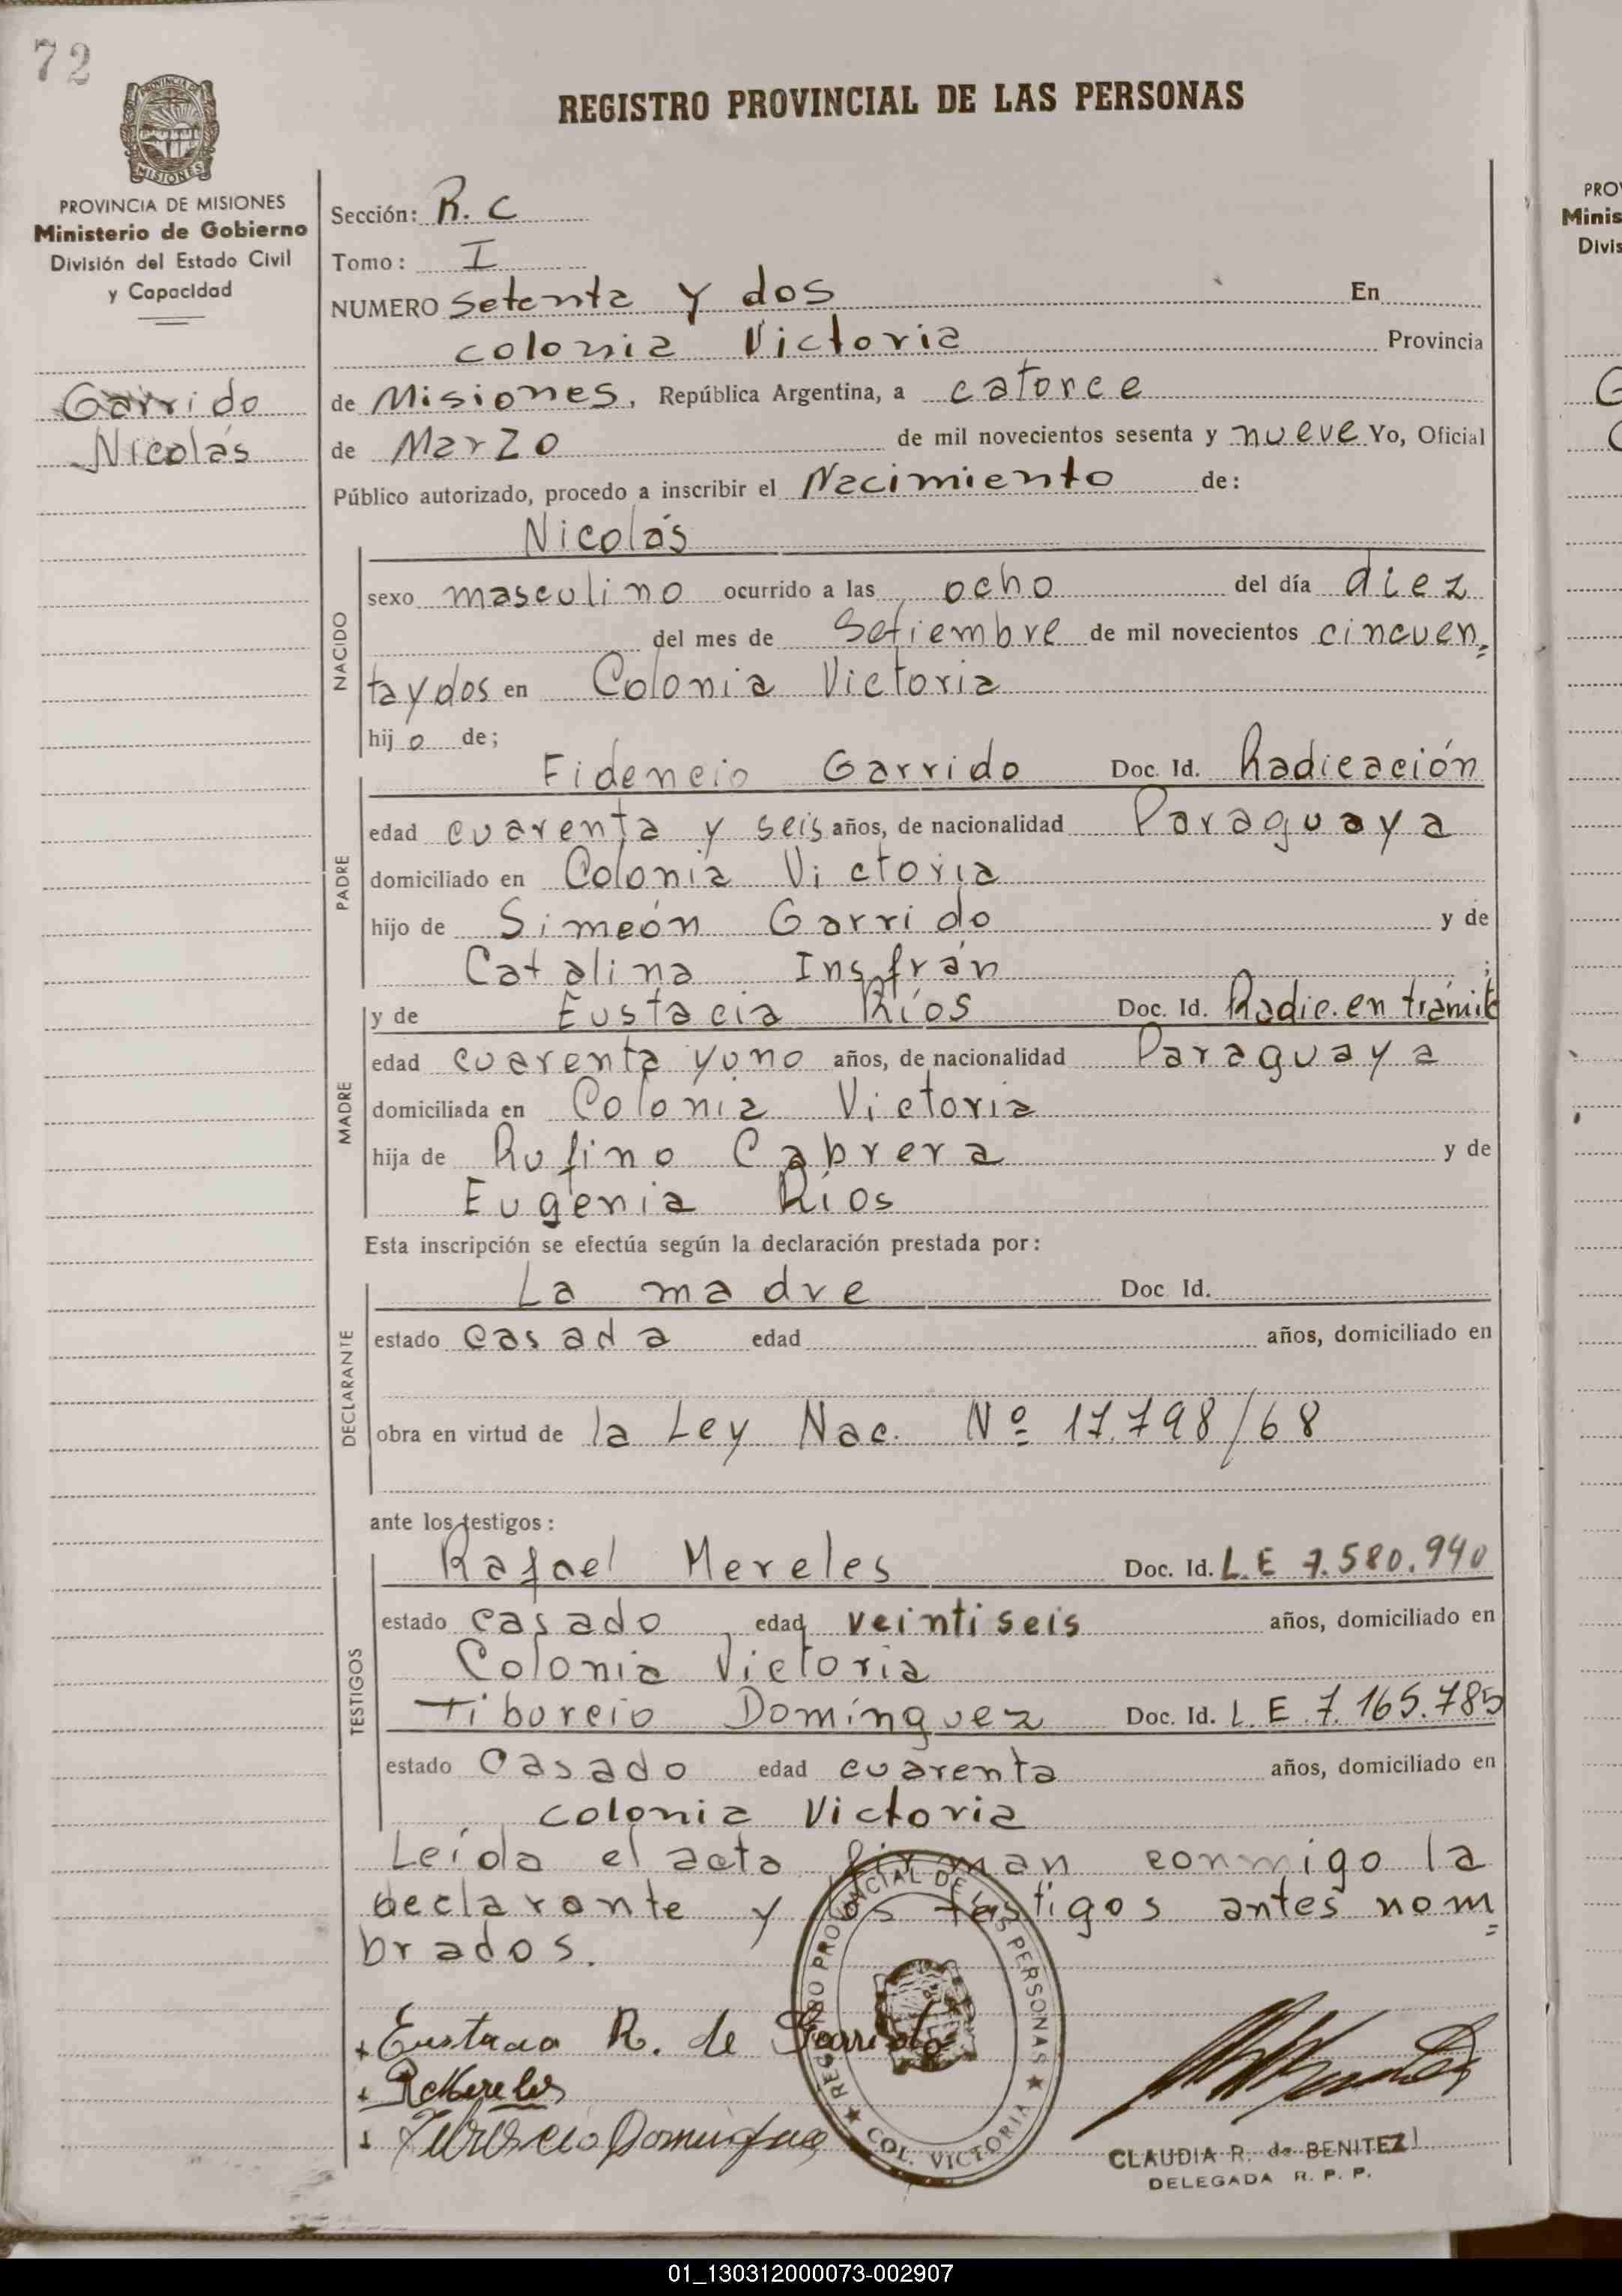 72
PROVINCIA DE MISIONES
Ministerio de Gobierno
División del Estado Civil
y Capacidad
Garrido
Nicolás
REGISTRO PROVINCIAL DE LAS PERSONAS
Sección: R. C
Tomo: I
NUMERO setenta y dos En
colonia Victoria Provincia
de Misiones, República Argentina, a catorce
de Marzo de mil novecientos sesenta y nueve Yo, Oficial
Público autorizado, procedo a inscribir el Nacimiento de:
Nicolás
NACIDO
sexo masculino ocurrido a las ocho del día diez
del mes de Setiembre de mil novecientos cincuen=
ta y dos en Colonia Victoria
hijo de;
PADRE
Fidencio Garrido Doc. Id. Radicación
edad cuarenta y seis años, de nacionalidad Paraguaya
domiciliado en Colonia Victoria
hijo de Simeón Garrido y de
Catalina Insfrán ;
MADRE
y de Eustacia Ríos Doc. Id. Radic. en trámit
edad cuarenta y uno años, de nacionalidad Paraguaya
domiciliada en Colonia Victoria
hija de Rufino Cabrera y de
Eugenia Ríos
Esta inscripción se efectúa según la declaración prestada por:
DECLARANTE
La madre Doc Id.
estado casada edad años, domiciliado en
obra en virtud de la Ley Nac. Nº 17.798/68
ante los testigos:
TESTIGOS
Rafael Mereles Doc. Id. L.E 7.580.940
estado casado edad veintiseis años, domiciliado en
Colonia Victoria
Tiburcio Domínguez Doc. Id. L.E.7.165.785
estado Casado edad cuarenta años, domiciliado en
colonia Victoria
Leída el acta firman conmigo la
declarante y los testigos antes nom=
brados.
Eustacia R. de Garrido
R Mereles
Tiburcio Dominguez
REGISTRO PROVINCIAL DE LAS PERSONAS
COL. VICTORIA
CLAUDIA R. de BENITEZ
DELEGADA R. P. P.
PRO
Minis
Divis
G
01_130312000073-002907